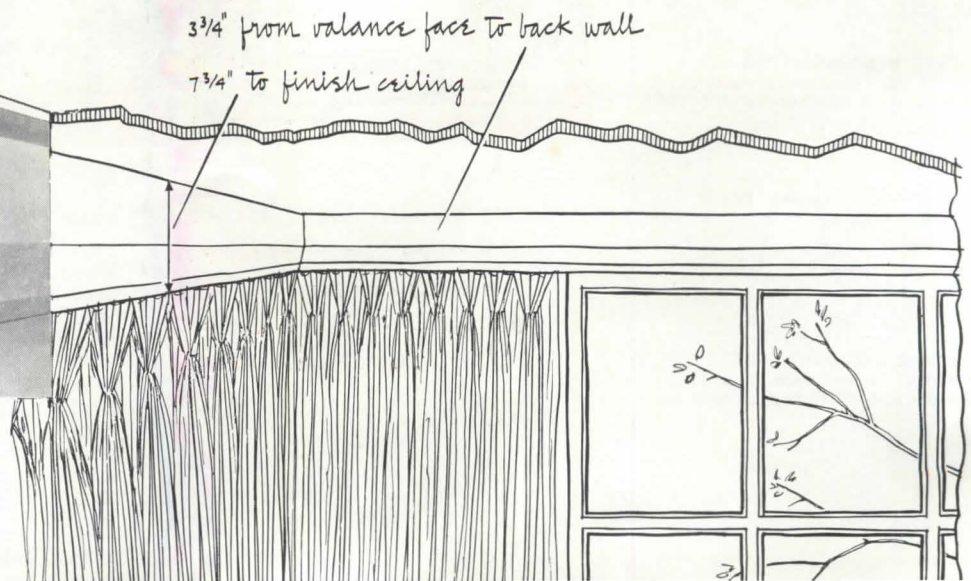 3 3/4" from valance face to back wall
7 3/4" to finish ceiling